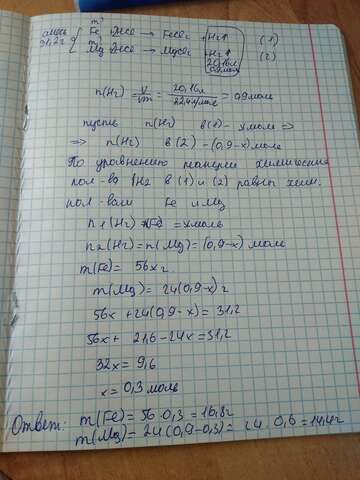 смесь 31,2г
m? Fe + 2HCl → FeCl2 + H2↑ (1)
m? Mg + 2HCl → MgCl2 + H2↑ (2)
20,16л
0,9моль
n(H2) V/Vm = 20,16л/22,4л/моль = 0,9моль
пусть n(H2) в(1) - x моль =>
=> n(H2) в(2) - (0,9-x) моль
По уравнению реакции химические
кол-ва H2 в (1) и (2) равны хим.
кол-вам Fe и Mg
n1(H2) = n(Fe) = x моль
n2(H2) = n(Mg) = (0,9-x) моль
m(Fe) = 56x г
m(Mg) = 24(0,9-x) г
56x + 24(0,9-x) = 31,2
56x + 21,6 - 24x = 31,2
32x = 9,6
x = 0,3 моль
Ответ: m(Fe) = 56·0,3 = 16,8г
m(Mg) - 24(0,9-0,3) = 24·0,6 = 14,4г